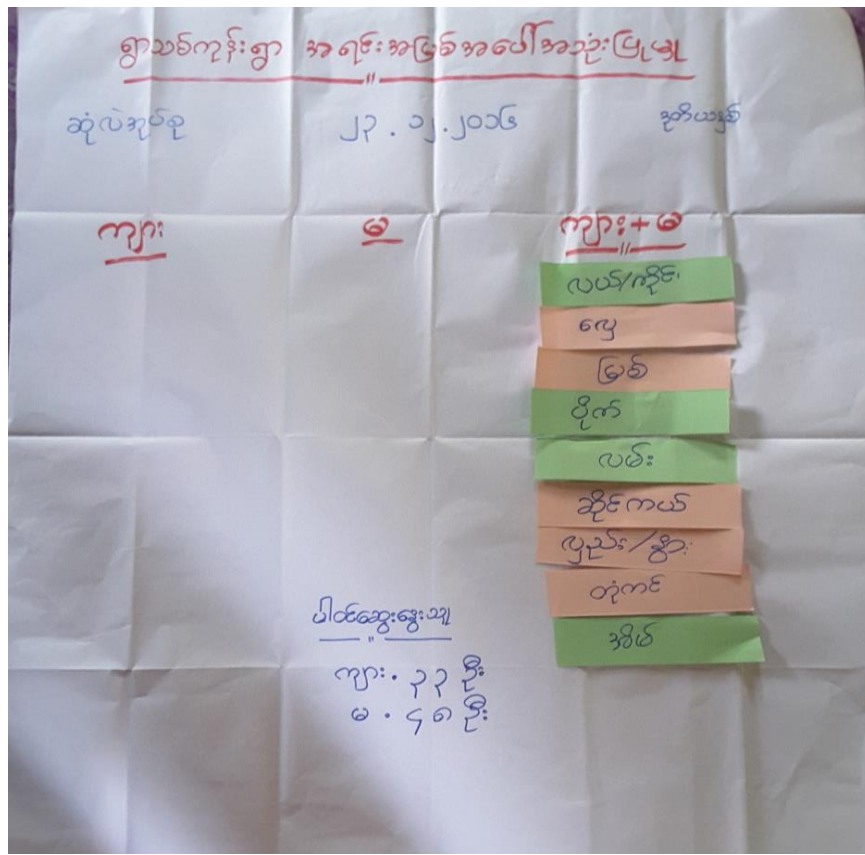 ရွာသစ်ကုန်းရွာ အရင်းအမြစ်အပေါ်အသုံးပြုမှု
ဆုံလဲအုပ်စု ၂၃.၁၂.၂၀၁၆ ဒုတိယနှစ်
ကျား မ ကျား+မ
လယ်/ကိုင်း
လှေ
မြစ်
ပိုက်
လမ်း
ဆိုင်ကယ်
လှည်း/နွား
တုံကင်
အိမ်
ပါဝင်ဆွေးနွေးသူ
ကျား. ၃၃ ဦး
မ . ၄၈ ဦး